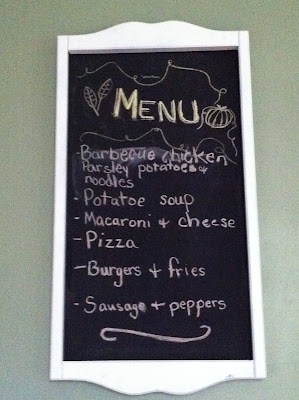 MENU
- Barbecue chicken
Parsley potatoes &
noodles
- Potatoe soup
- Macaroni & cheese
- Pizza
- Burgers & fries
- Sausage & peppers